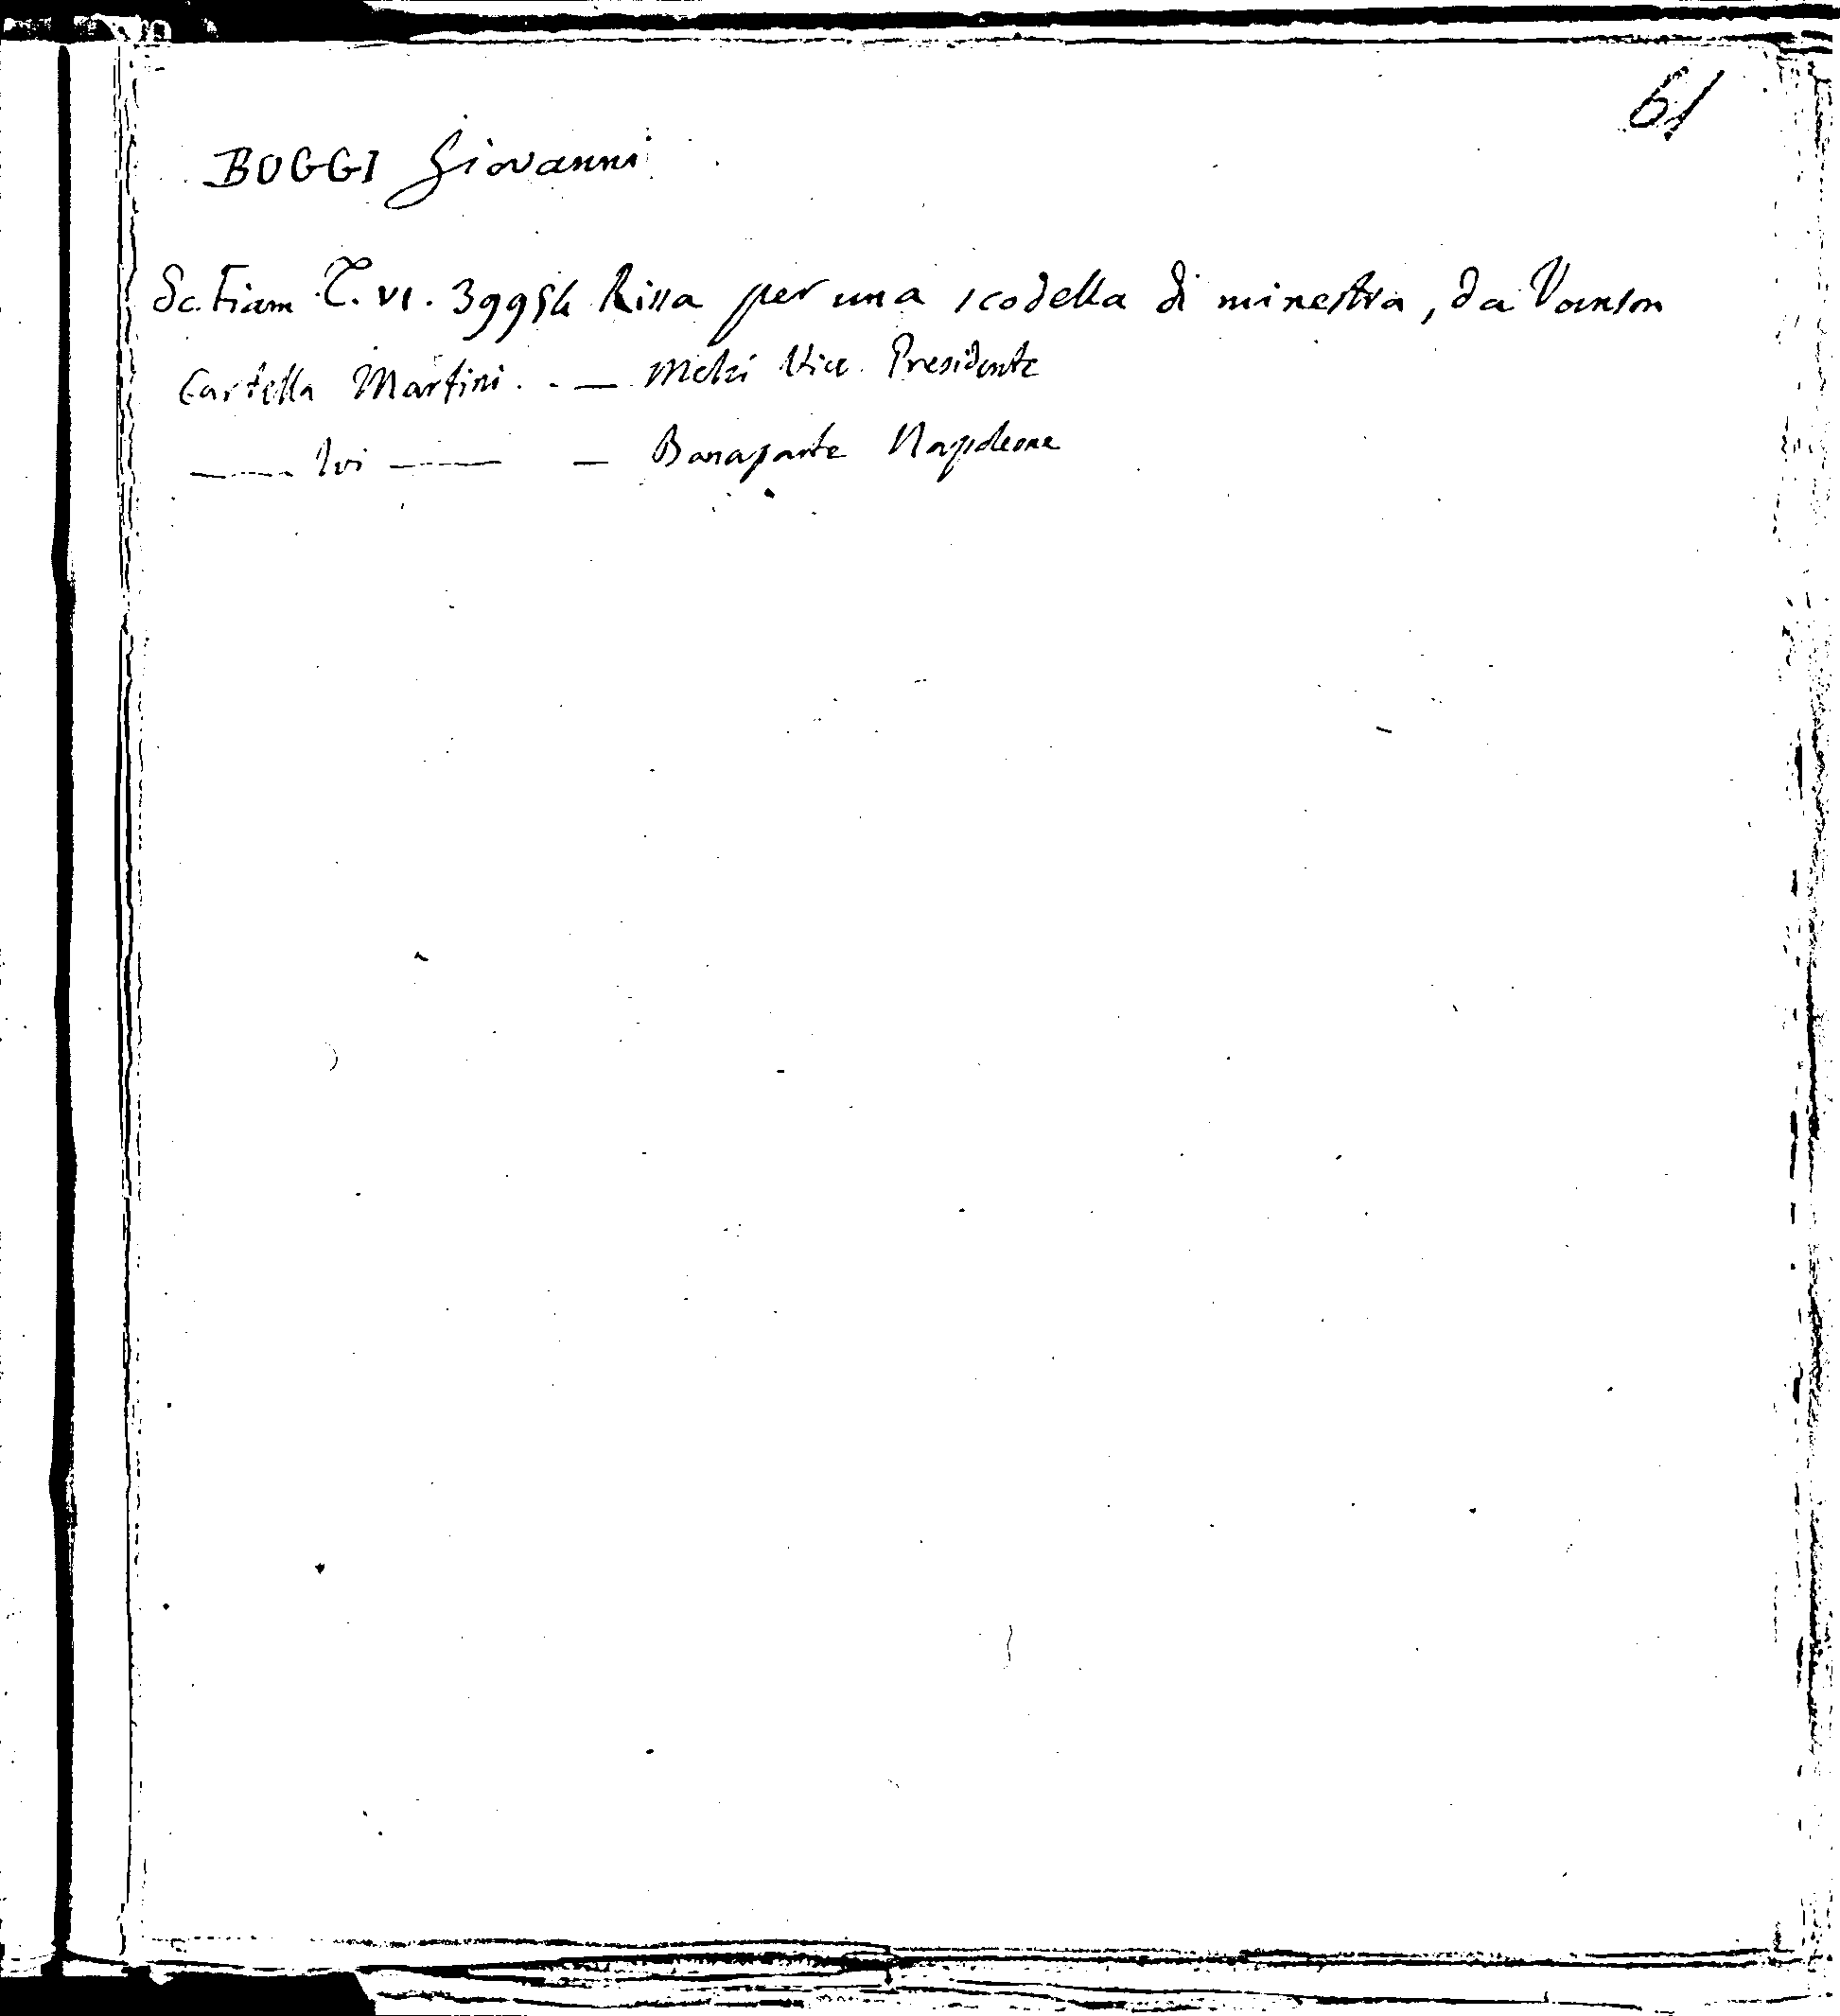 61
BOGGI Giovanni
Sc. Fiam. T. VI. 39954 Rissa per una scodella di minestra, da
Cartella Martini . . — Melzi Vice Presidente
—— Ivi —— — Bonaparte Napoleone